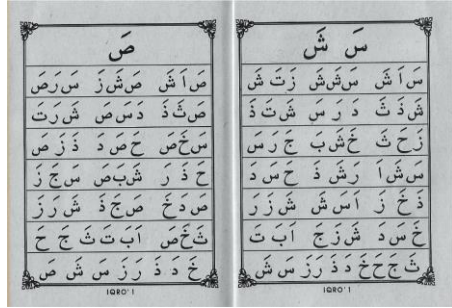 سَ شَ
سَ اَ شَ سَ شَ شَ زَ تَ شَ
شَ ذَ ثَ دَ رَ سَ شَ تَ ذَ
زَ حَ ثَ خَ شَ بَ جَ رَ سَ
سَ شَ اَ رَ شَ ذَ حَ سَ دَ
ذَ خَ زَ اَ سَ شَ شَ زَ رَ
خَ سَ دَ شَ زَ جَ اَ بَ تَ
ثَ جَ حَ خَ دَ ذَ رَ زَ سَ شَ
IQRO' 1
صَ
صَ اَ شَ صَ شَ زَ سَ رَ صَ
صَ ثَ ذَ دَ سَ صَ شَ رَ تَ
سَ خَ صَ حَ صَ دَ ذَ زَ صَ
حَ ذَ رَ شَ بَ صَ سَ جَ زَ
صَ دَ خَ صَ جَ ذَ شَ رَ زَ
ثَ خَ صَ اَ بَ تَ ثَ جَ حَ
خَ دَ ذَ رَ زَ سَ شَ صَ
IQRO' 1